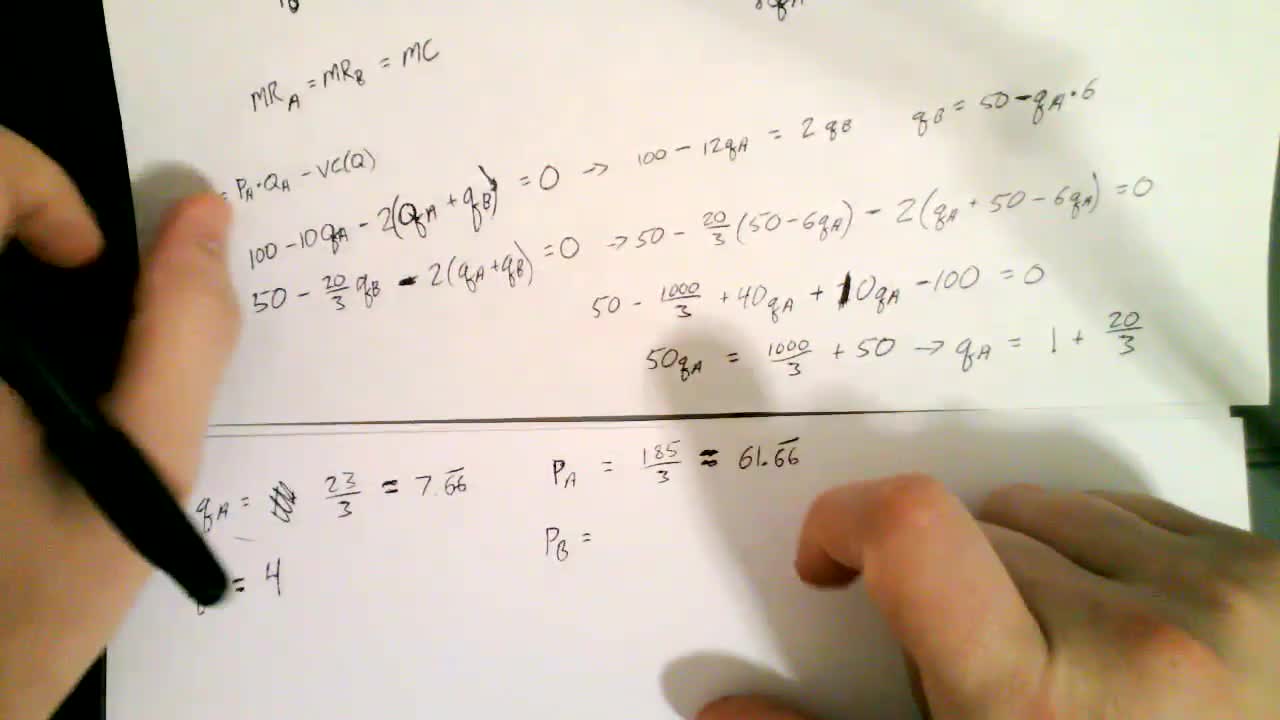 MR_A = MR_B = MC
= P_A · Q_A - VC(Q)
100 - 10q_A - 2(Q_A + q_B) = 0 → 100 - 12q_A = 2q_B q_B = 50 - q_A · 6
50 - 20/3 q_B - 2(q_A + q_B) = 0 → 50 - 20/3 (50 - 6q_A) - 2(q_A + 50 - 6q_A) = 0
50 - 1000/3 + 40q_A + 10q_A - 100 = 0
50q_A = 1000/3 + 50 → q_A = 1 + 20/3
q_A = 23/3 ≈ 7.6̅6̅ P_A = 185/3 ≈ 61.6̅6̅
= 4
P_B =